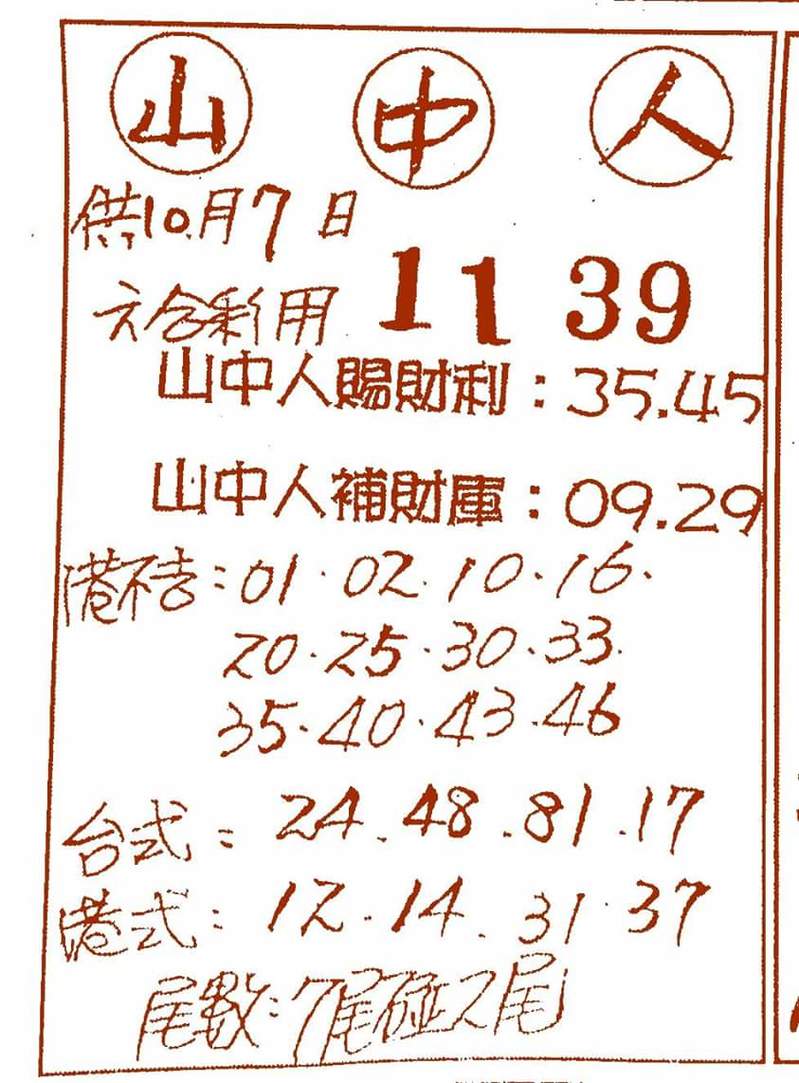 山 中 人
供10.月7日
六合彩用 11 39
山中人賜財利：35.45
山中人補財庫：09.29
港不吉：01.02.10.16.
20.25.30.33.
35.40.43.46
台式：24.48.81.17
港式：12.14.31.37
尾數：7尾碰2尾